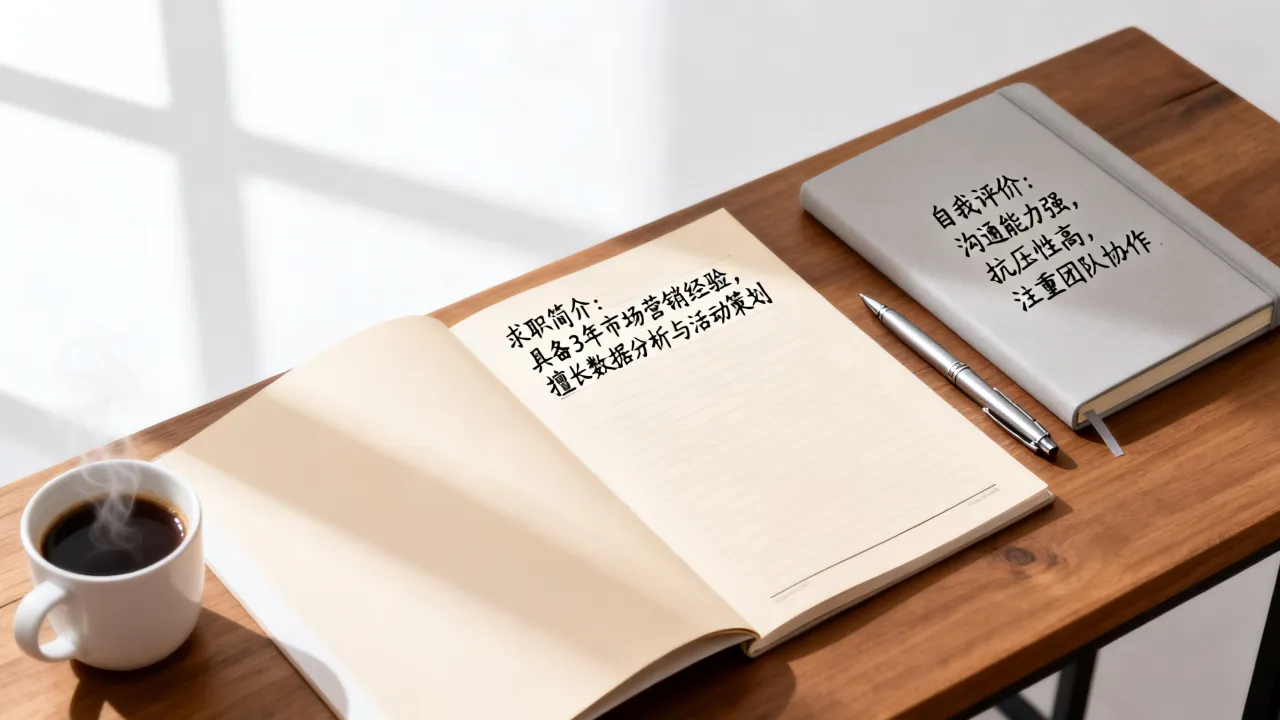 求职简介：
具备3年市场营销经验，
擅长数据分析与活动策划
自我评价：
沟通能力强，
抗压性高，
注重团队协作